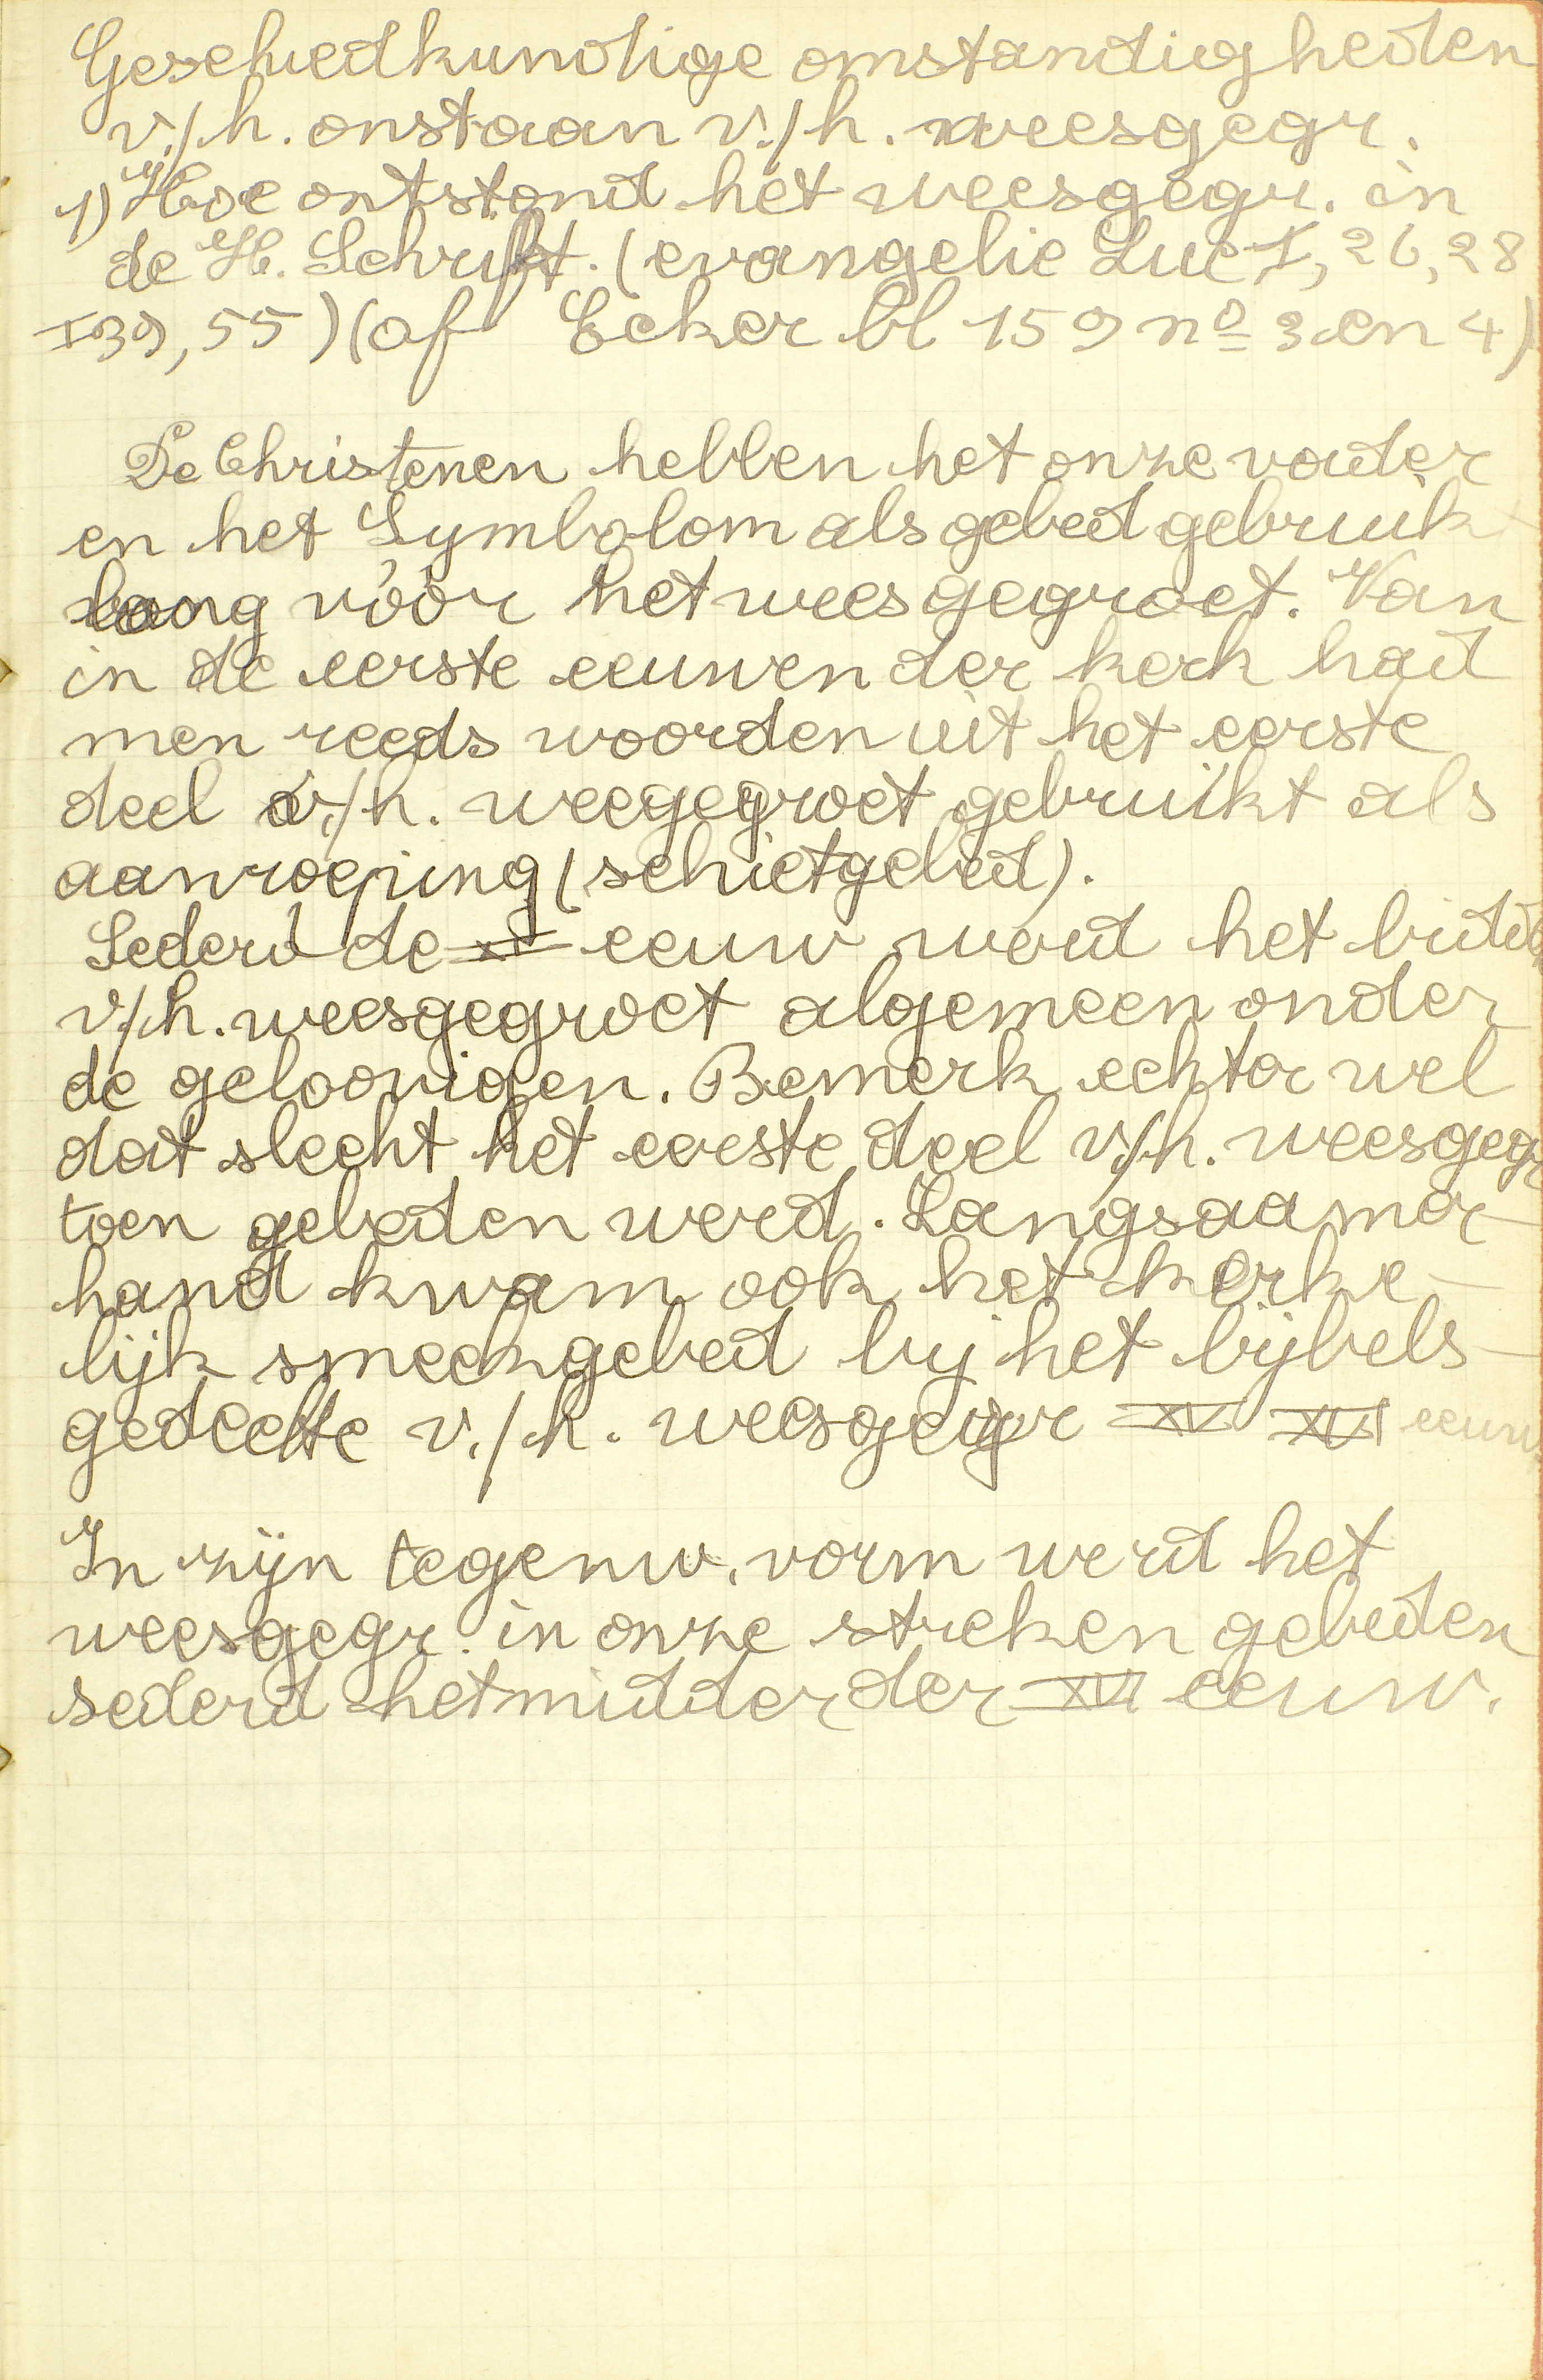 Geschiedkundige omstandigheden
v./h. onstaan v./h. weesgegr.
1) Hoe ontstond het weesgegr. in
de H. Schrift. (evangelie Luc I, 26, 28
I 39, 55) (of Ecker bl 159 nº 3 en 4)
De Christenen hebben het onze vader
en het Symbolom als gebed gebruik
lang vóór het wees gegroet. Van
in de eerste eeuwen der kerk had
men reeds woorden uit het eerste
deel v./h. weegegroet gebruikt als
aanroeping (schietgebed).
Sederd de eeuw werd het
v./h. weesgegroet algemeen onder
de geloovigen. Bemerk echter wel
dat slecht het eerste deel v./h. weesgegr
toen gebeden werd. Langsaamer-
hand kwam ook het kerke-
lijk smeekgebed bij het bijbels-
gedeelte v./h. weesgegr XV XVI eeuw
In zijn tegenw. vorm werd het
weesgegr. in onze streken gebeden
sederd het midder der XVI eeuw.